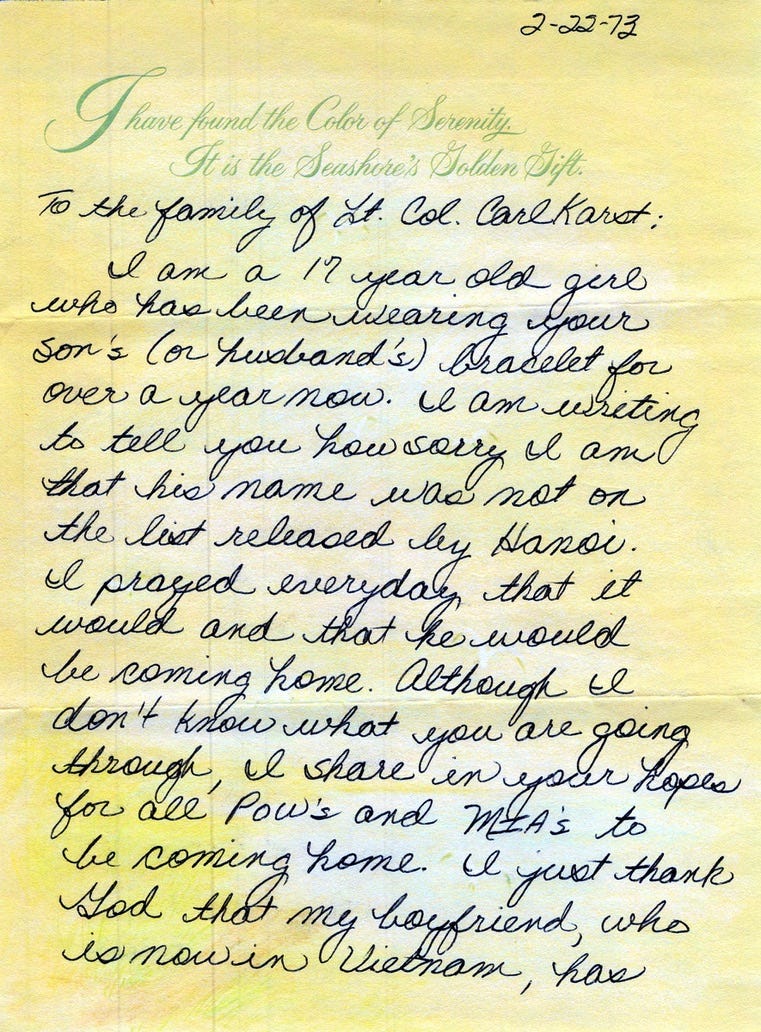 2-22-73
I have found the Color of Serenity.
It is the Seashore's Golden Gift.
To the family of Lt. Col. Carl Karst:
I am a 17 year old girl
who has been wearing your
son's (or husband's) bracelet for
over a year now. I am writing
to tell you how sorry I am
that his name was not on
the list released by Hanoi.
I prayed everyday that it
would and that he would
be coming home. Although I
don't know what you are going
through, I share in your hopes
for all POW's and MIA's to
be coming home. I just thank
God that my boyfriend, who
is now in Vietnam, has